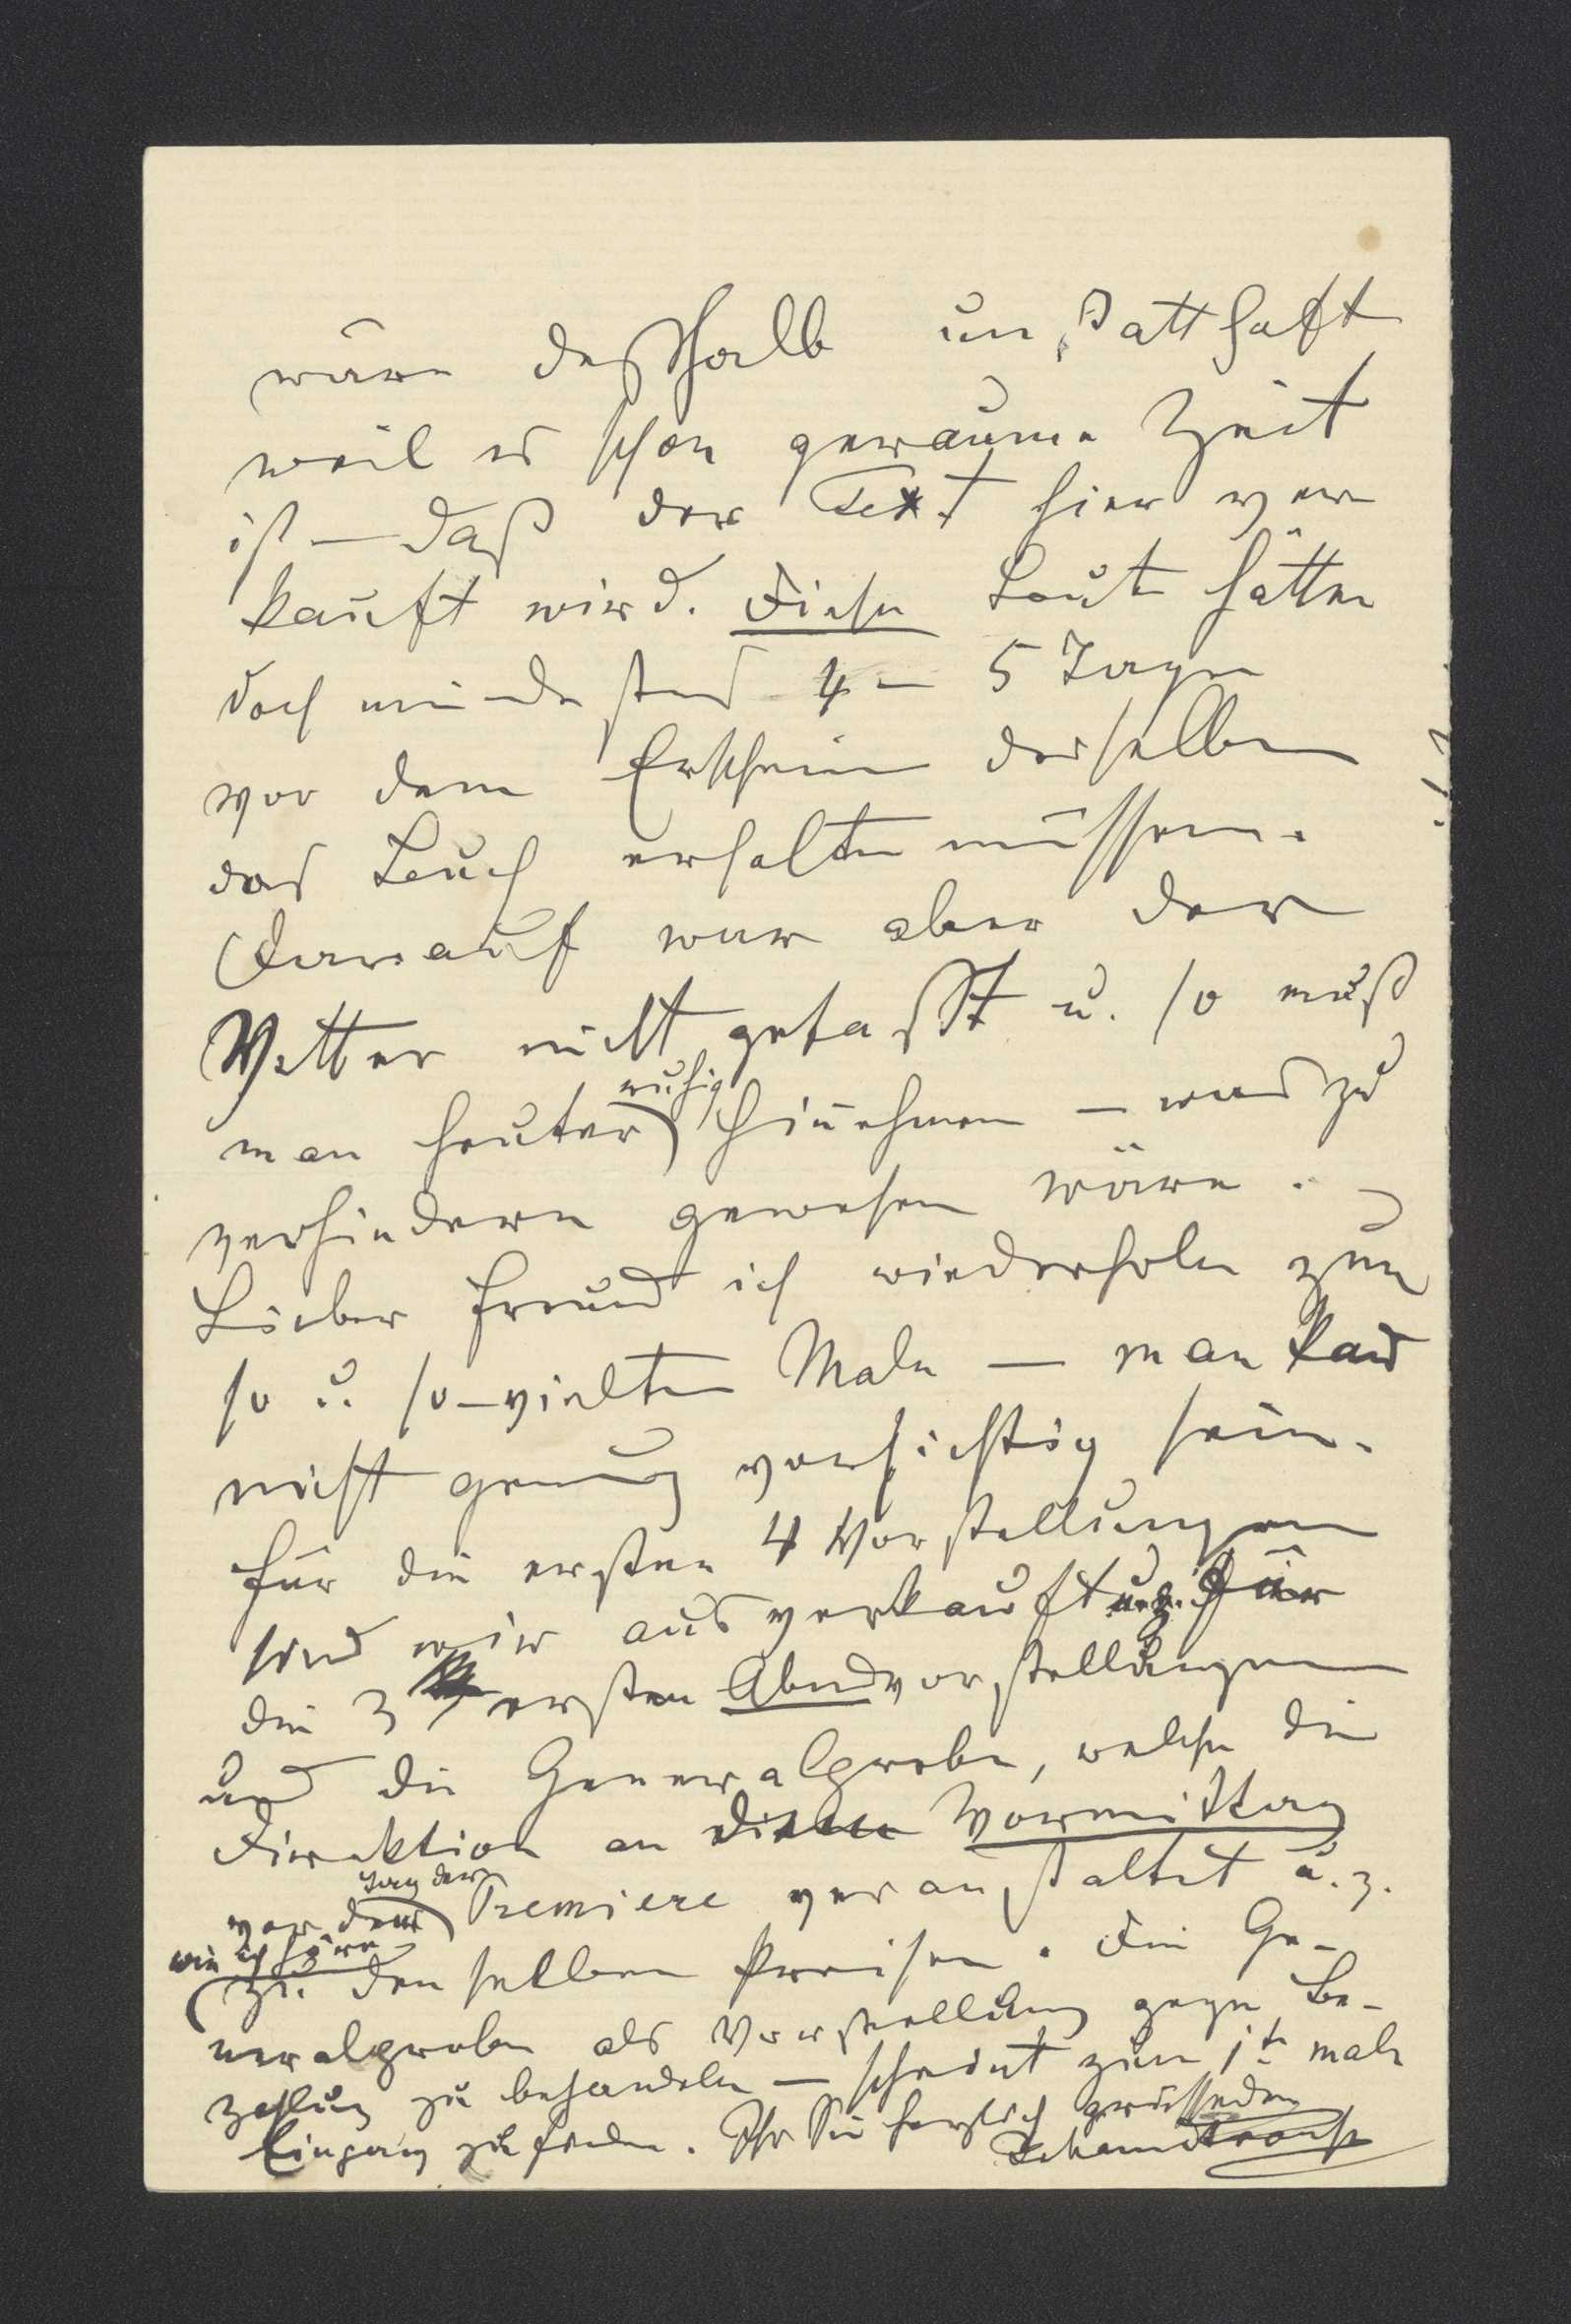 wäre deßhalb unstatthaft
weil es schon geraume Zeit
ist – daß der Text hier ver
kauft wird. Diese Leute hätten
doch mindestens 4 – 5 Tage
vor dem Erscheinen desselben
das Buch erhalten müssen.
Darauf war aber der
Vetter nicht gefaßt u. so muß
ruhig
man heuter hinnehmen – was zu
verhindern gewesen wäre. –
Lieber Freund ich wiederhole zum
so u. so-vielten Male – man kan̄
nicht genug vorsichtig sein.
Für die ersten 4 Vorstellungen
sind wir ausverkauft u. z. für
die 3 ersten Abendvorstellungen
und die Generalprobe, welche die
Direktion an diesem Vormittag
Tag der
vor dem Premiere veranstaltet u. z.
wie ich höre
zu denselben Preisen. Die Ge-
neralprobe als Vorstellung gegen Be-
zahlung zu behandeln – scheint zum 1t male
Eingang zu finden. Ihr Sie herzlich grüssender
Johann Strauss